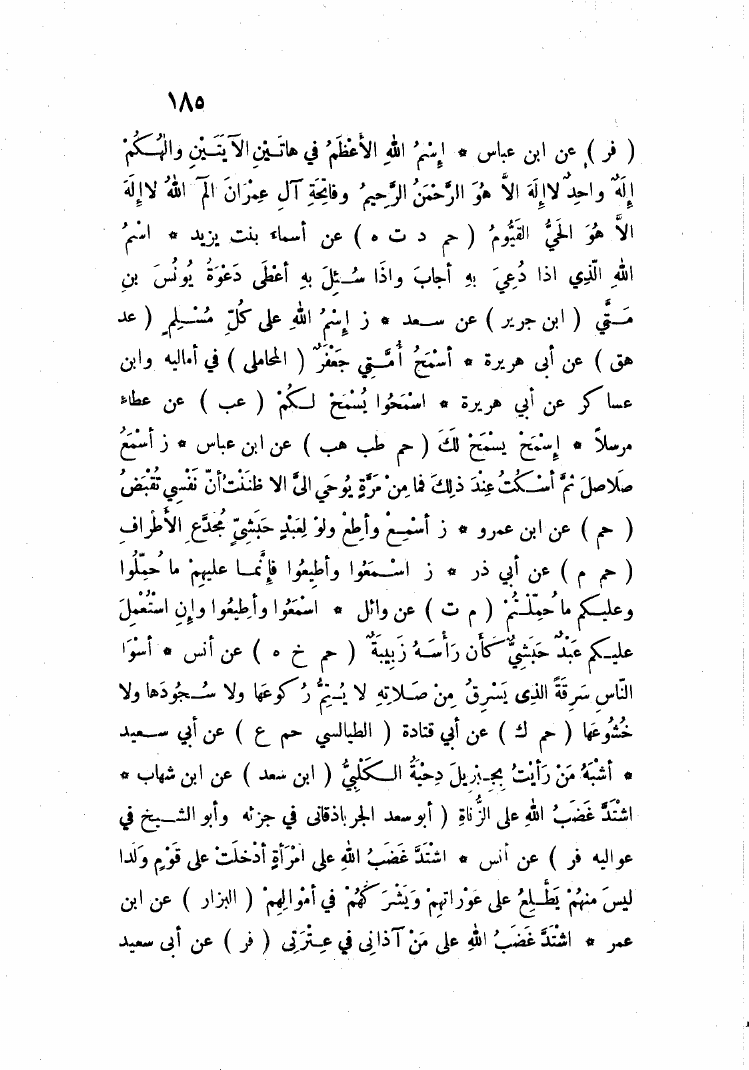 ١٨٥
( فر ) عن ابن عباس * إِسْمُ اللهِ الأَعْظَمُ في هاتَيْنِ الآيَتَيْنِ وإلٰهُكُمْ
إِلَهٌ واحِدٌ لاإِلَهَ الاَّ هُوَ الرَّحْمَنُ الرَّحِيمُ وفاتِحَةِ آلِ عِمْرَانَ الَمَ اللهُ لاإِلَهَ
الاَّ هُوَ الحَيُّ القَيُّومُ ( حم د ت ه ) عن أسماء بنت يزيد * اسْمُ
اللهِ الَّذِي اذا دُعِيَ بِهِ أجابَ واذَا سُئِلَ بِهِ أعْطَى دَعْوَةُ يُونُسَ بنِ
مَتَّي ( ابن جرير ) عن سعد * ز إِسْمُ اللهِ على كُلِّ مُسْلِمٍ ( عد
هق ) عن أبى هريرة * أسْمَحُ أُمَّتِي جَعْفَرٌ ( المحاملى ) في أماليه وابن
عساكر عن أبي هريرة * اسْمَحُوا يُسْمَحْ لَكُمْ ( عب ) عن عطاء
مرسلاً * إِسْمَحْ يسْمَحْ لَكَ ( حم طب هب ) عن ابن عباس * ز أسْمَعُ
صَلاَصِلَ ثُمَّ أسْكُتُ عِنْدَ ذلِكَ فَما مِنْ مَرَّةٍ يُوحَى الىَّ الا ظَنَنْتُ أنَّ نَفْسِي تُقْبَضُ
( حم ) عن ابن عمرو * ز أسْمِعْ وأطِعْ ولوْ لِعَبْدٍ حَبَشِىٍّ مُجَدَّعِ الأطْرافِ
( حم م ) عن أبي ذر * ز اسْمَعُوا وأطِيعُوا فإِنَّما عليهِمْ ما حُمِّلُوا
وعليكم ما حُمِّلْتُمْ ( م ت ) عن وائل * اسْمَعُوا وأطِيعُوا وإِنِ اسْتُعْمِلَ
عليكم عَبْدٌ حَبَشِيٌّ كأن رَأْسَهُ زَبِيبَةٌ ( حم خ ه ) عن أنس * أسْوَا
النّاسِ سَرِقَةً الذِى يَسْرِقُ مِنْ صَلاتِهِ لا يُتِمُّ رُكوعَها ولا سُجُودَها ولا
خُشُوعَها ( حم ك ) عن أبي قتادة ( الطيالسي حم ع ) عن أبي سعيد
* أشْبَهُ مَنْ رَأيْتُ بِجِبْرِيلَ دِحْيَةُ الكَلْبِيُّ ( ابن سعد ) عن ابن شهاب *
اشْتَدَّ غَضَبُ اللهِ على الزُّناةِ ( أبوسعد الجرباذقانى في جزئه وأبو الشيخ في
عواليه فر ) عن أنس * اشْتَدَّ غَضَبُ اللهِ على امْرَأةٍ أدْخَلَتْ على قَوْمٍ وَلَدا
ليسَ منهُمْ يَطَّلِعُ على عَوْرَاتِهِمْ وَيَشْرَكُهُمْ في أمْوَالِهِمْ ( البزار ) عن ابن
عمر * اشْتَدَّ غَضَبُ اللهِ على مَنْ آذانِى في عِتْرَتِى ( فر ) عن أبى سعيد